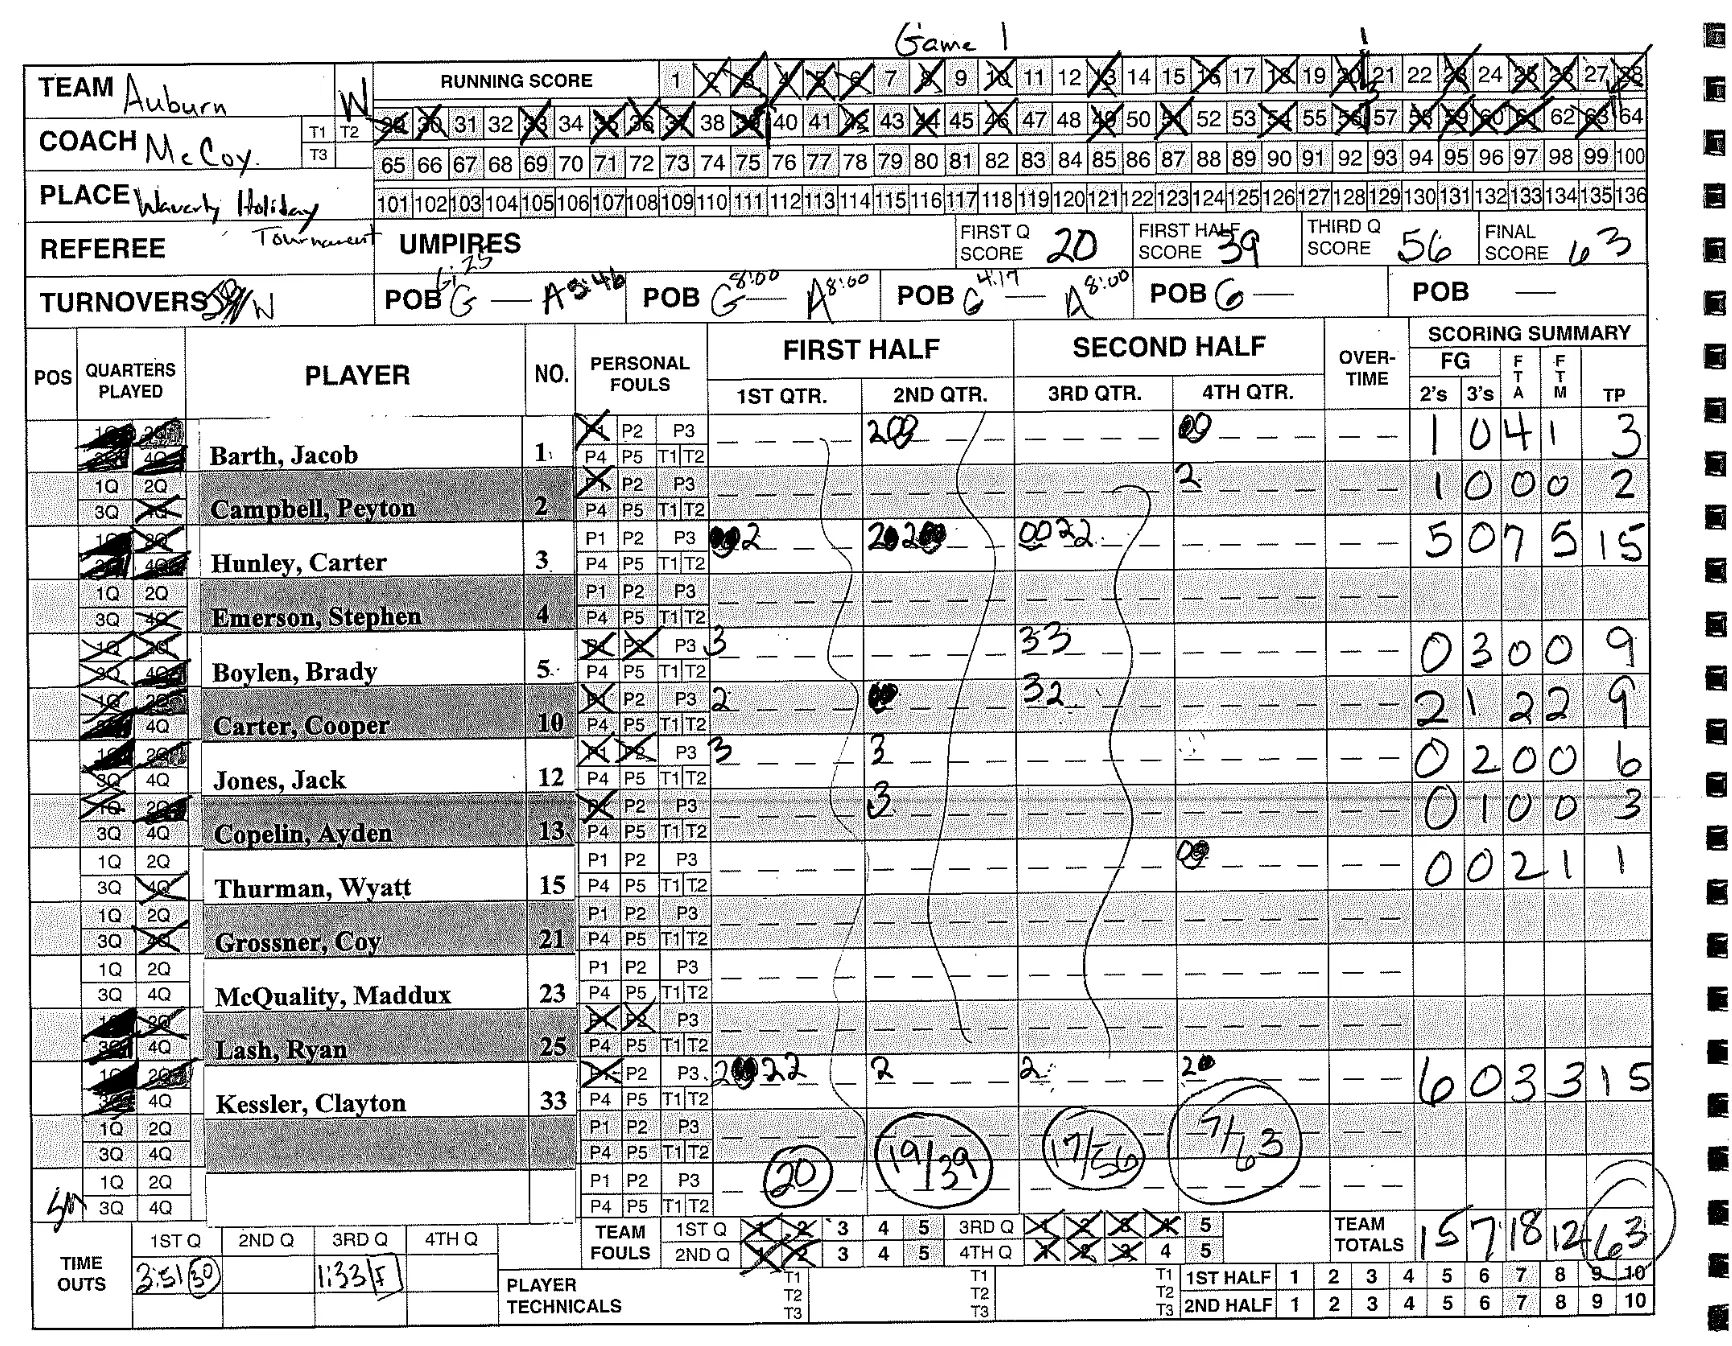 Game 1
TEAM Auburn W
RUNNING SCORE 1 2 3 4 5 6 7 8 9 10 11 12 13 14 15 16 17 18 19 20 21 22 23 24 25 26 27 28
COACH McCoy T1 T2 T3
29 30 31 32 33 34 35 36 37 38 39 40 41 42 43 44 45 46 47 48 49 50 51 52 53 54 55 56 57 58 59 60 61 62 63 64
65 66 67 68 69 70 71 72 73 74 75 76 77 78 79 80 81 82 83 84 85 86 87 88 89 90 91 92 93 94 95 96 97 98 99 100
PLACE Waverly Holiday Tournament
101 102 103 104 105 106 107 108 109 110 111 112 113 114 115 116 117 118 119 120 121 122 123 124 125 126 127 128 129 130 131 132 133 134 135 136
REFEREE UMPIRES FIRST Q SCORE 20 FIRST HALF SCORE 39 THIRD Q SCORE 56 FINAL SCORE 63
TURNOVERS POB G 6:25 — A 5:46 POB G 8:00 — A 8:00 POB G 4:17 — A 8:00 POB G — POB —
POS QUARTERS PLAYED PLAYER NO. PERSONAL FOULS FIRST HALF SECOND HALF OVER-TIME SCORING SUMMARY
1ST QTR. 2ND QTR. 3RD QTR. 4TH QTR. FG 2's 3's FTA FTM TP
1Q 2Q 3Q 4Q Barth, Jacob 1 P1 P2 P3 P4 P5 T1 T2 200 00 1 0 4 1 3
1Q 2Q 3Q 4Q Campbell, Peyton 2 P1 P2 P3 P4 P5 T1 T2 2 1 0 0 0 2
1Q 2Q 3Q 4Q Hunley, Carter 3 P1 P2 P3 P4 P5 T1 T2 002 20200 0022 5 0 7 5 15
1Q 2Q 3Q 4Q Emerson, Stephen 4 P1 P2 P3 P4 P5 T1 T2
1Q 2Q 3Q 4Q Boylen, Brady 5 P1 P2 P3 P4 P5 T1 T2 3 33 0 3 0 0 9
1Q 2Q 3Q 4Q Carter, Cooper 10 P1 P2 P3 P4 P5 T1 T2 2 00 32 2 1 2 2 9
1Q 2Q 3Q 4Q Jones, Jack 12 P1 P2 P3 P4 P5 T1 T2 3 3 0 2 0 0 6
1Q 2Q 3Q 4Q Copelin, Ayden 13 P1 P2 P3 P4 P5 T1 T2 3 0 1 0 0 3
1Q 2Q 3Q 4Q Thurman, Wyatt 15 P1 P2 P3 P4 P5 T1 T2 00 0 0 2 1 1
1Q 2Q 3Q 4Q Grossner, Coy 21 P1 P2 P3 P4 P5 T1 T2
1Q 2Q 3Q 4Q McQuality, Maddux 23 P1 P2 P3 P4 P5 T1 T2
1Q 2Q 3Q 4Q Lash, Ryan 25 P1 P2 P3 P4 P5 T1 T2
1Q 2Q 3Q 4Q Kessler, Clayton 33 P1 P2 P3 P4 P5 T1 T2 20022 2 2 20 6 0 3 3 15
1Q 2Q 3Q 4Q P1 P2 P3 P4 P5 T1 T2
1Q 2Q 3Q 4Q P1 P2 P3 P4 P5 T1 T2
20 19/39 17/56 7/63
TIME OUTS 1ST Q 2ND Q 3RD Q 4TH Q
3:51 30 1:33 F
TEAM FOULS 1ST Q 1 2 3 4 5 3RD Q 1 2 3 4 5
2ND Q 1 2 3 4 5 4TH Q 1 2 3 4 5
TEAM TOTALS 15 7 18 12 63
PLAYER TECHNICALS T1 T2 T3 T1 T2 T3 T1 T2 T3
1ST HALF 1 2 3 4 5 6 7 8 9 10
2ND HALF 1 2 3 4 5 6 7 8 9 10